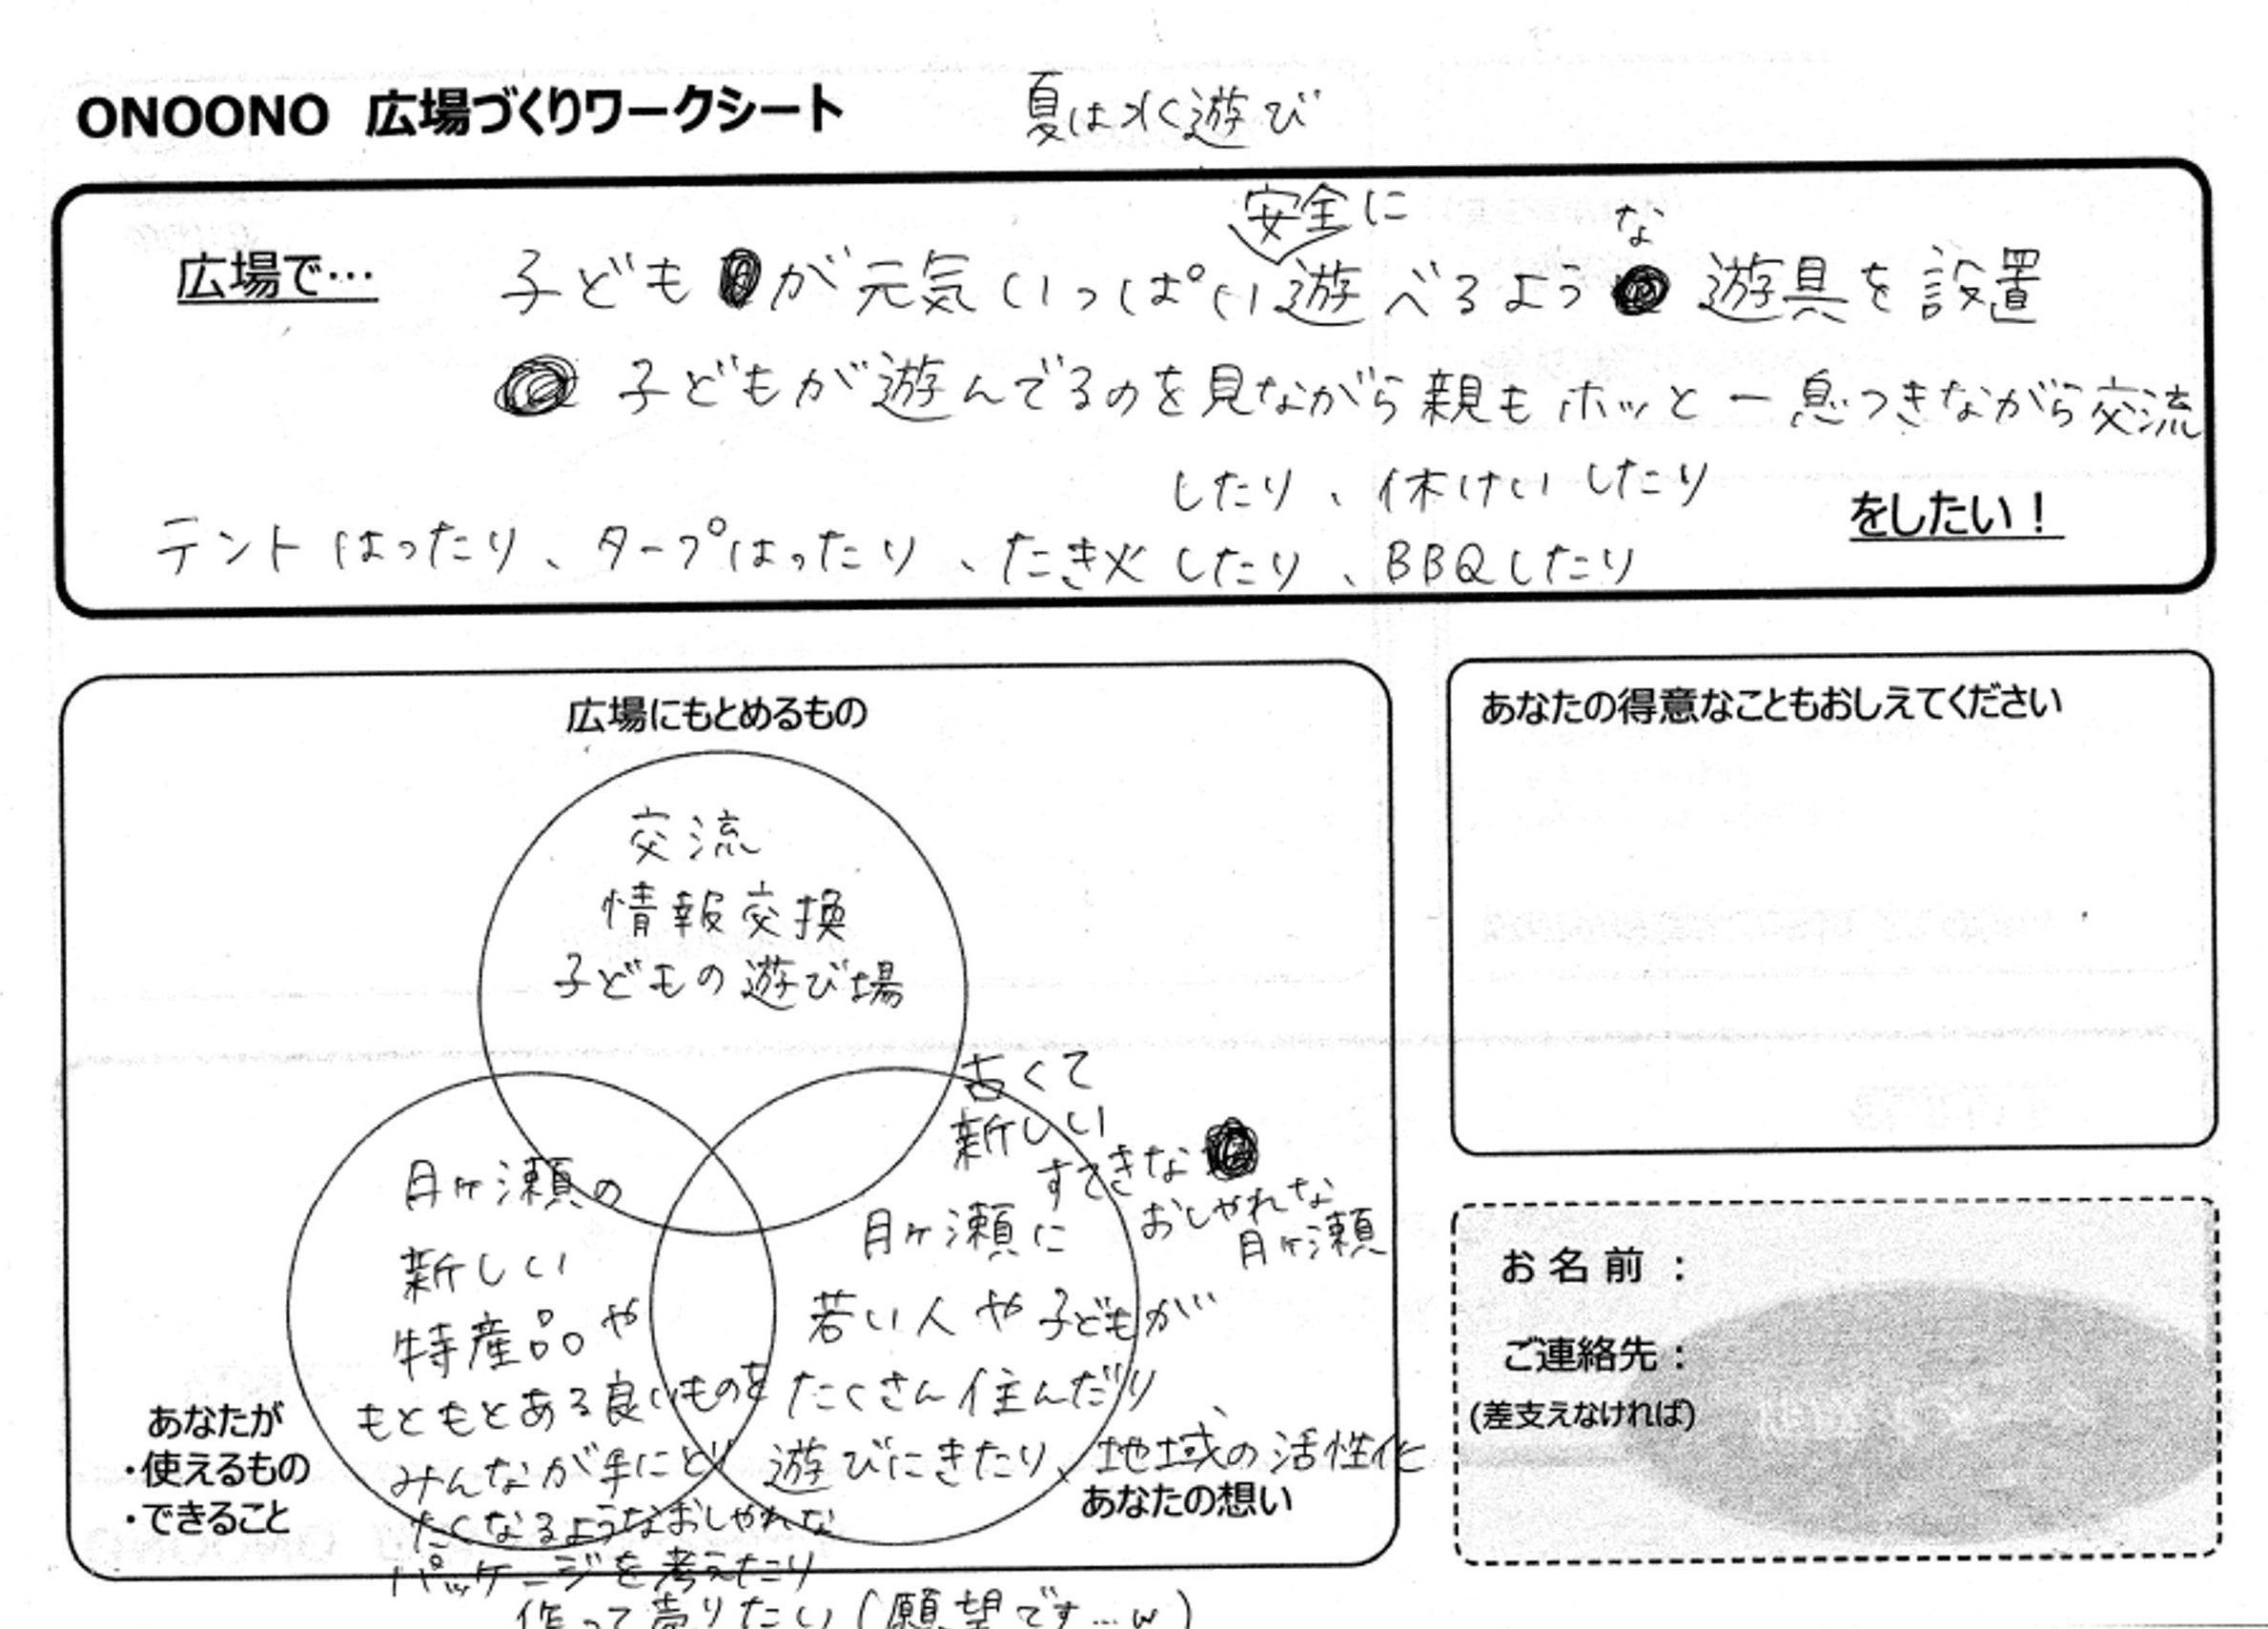 ONOONO 広場づくりワークシート
夏は水遊び
広場で…
安全に
な
子どもが元気いっぱい遊べるよう遊具を設置
子どもが遊んでるのを見ながら親もホッと一息つきながら交流
したり、休けいしたり
をしたい!
テントはったり、タープはったり、たき火したり、BBQしたり
広場にもとめるもの
交流
情報交換
子どもの遊び場
あなたが
・使えるもの
・できること
月ヶ瀬の
新しい
特産品や
もともとある良いものを
みんなが手にとり
たくなるようなおしゃれな
パッケージを考えたり
作って売りたい(願望です…w)
古くて
新しい
すてきな
おしゃれな
月ヶ瀬
月ヶ瀬に
若い人や子どもが
たくさん住んだり
遊びにきたり、地域の活性化
あなたの想い
あなたの得意なこともおしえてください
お名前：
ご連絡先：
(差支えなければ)